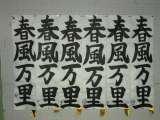 春風万里
春風万里
春風万里
春風万里
春風万里
春風万里